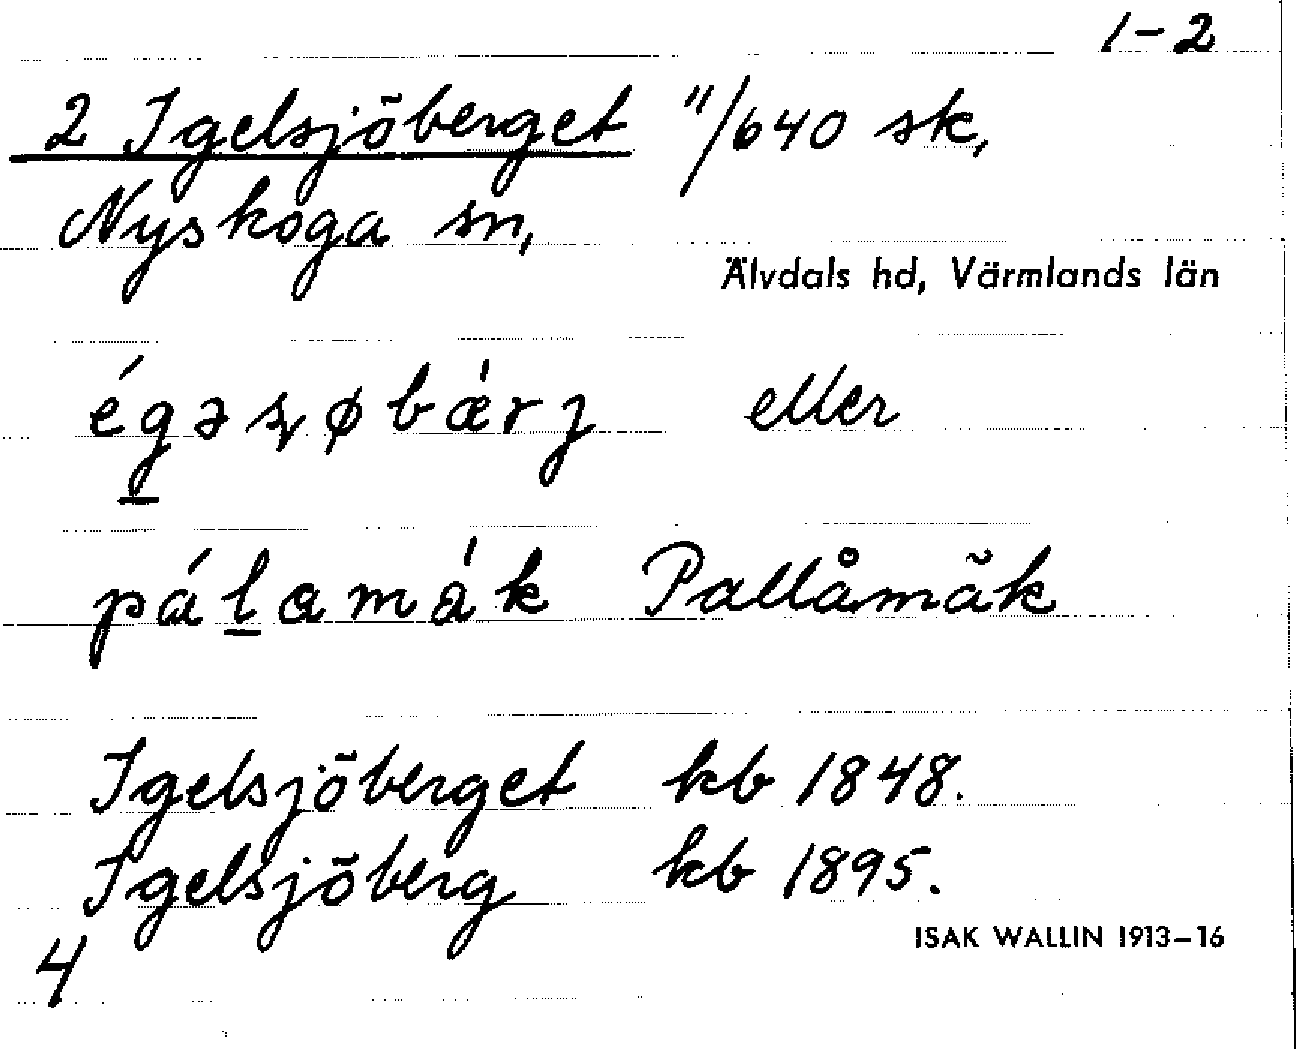 1-2
2 Igelsjöberget 11/640 sk,
Nyskoga sn,
Älvdals hd, Värmlands län
égəʂøbǽrj eller
pálamák Pallåmäk
Igelsjöberget kb 1848.
Igelsjöberg kb 1895.
ISAK WALLIN 1913-16
4